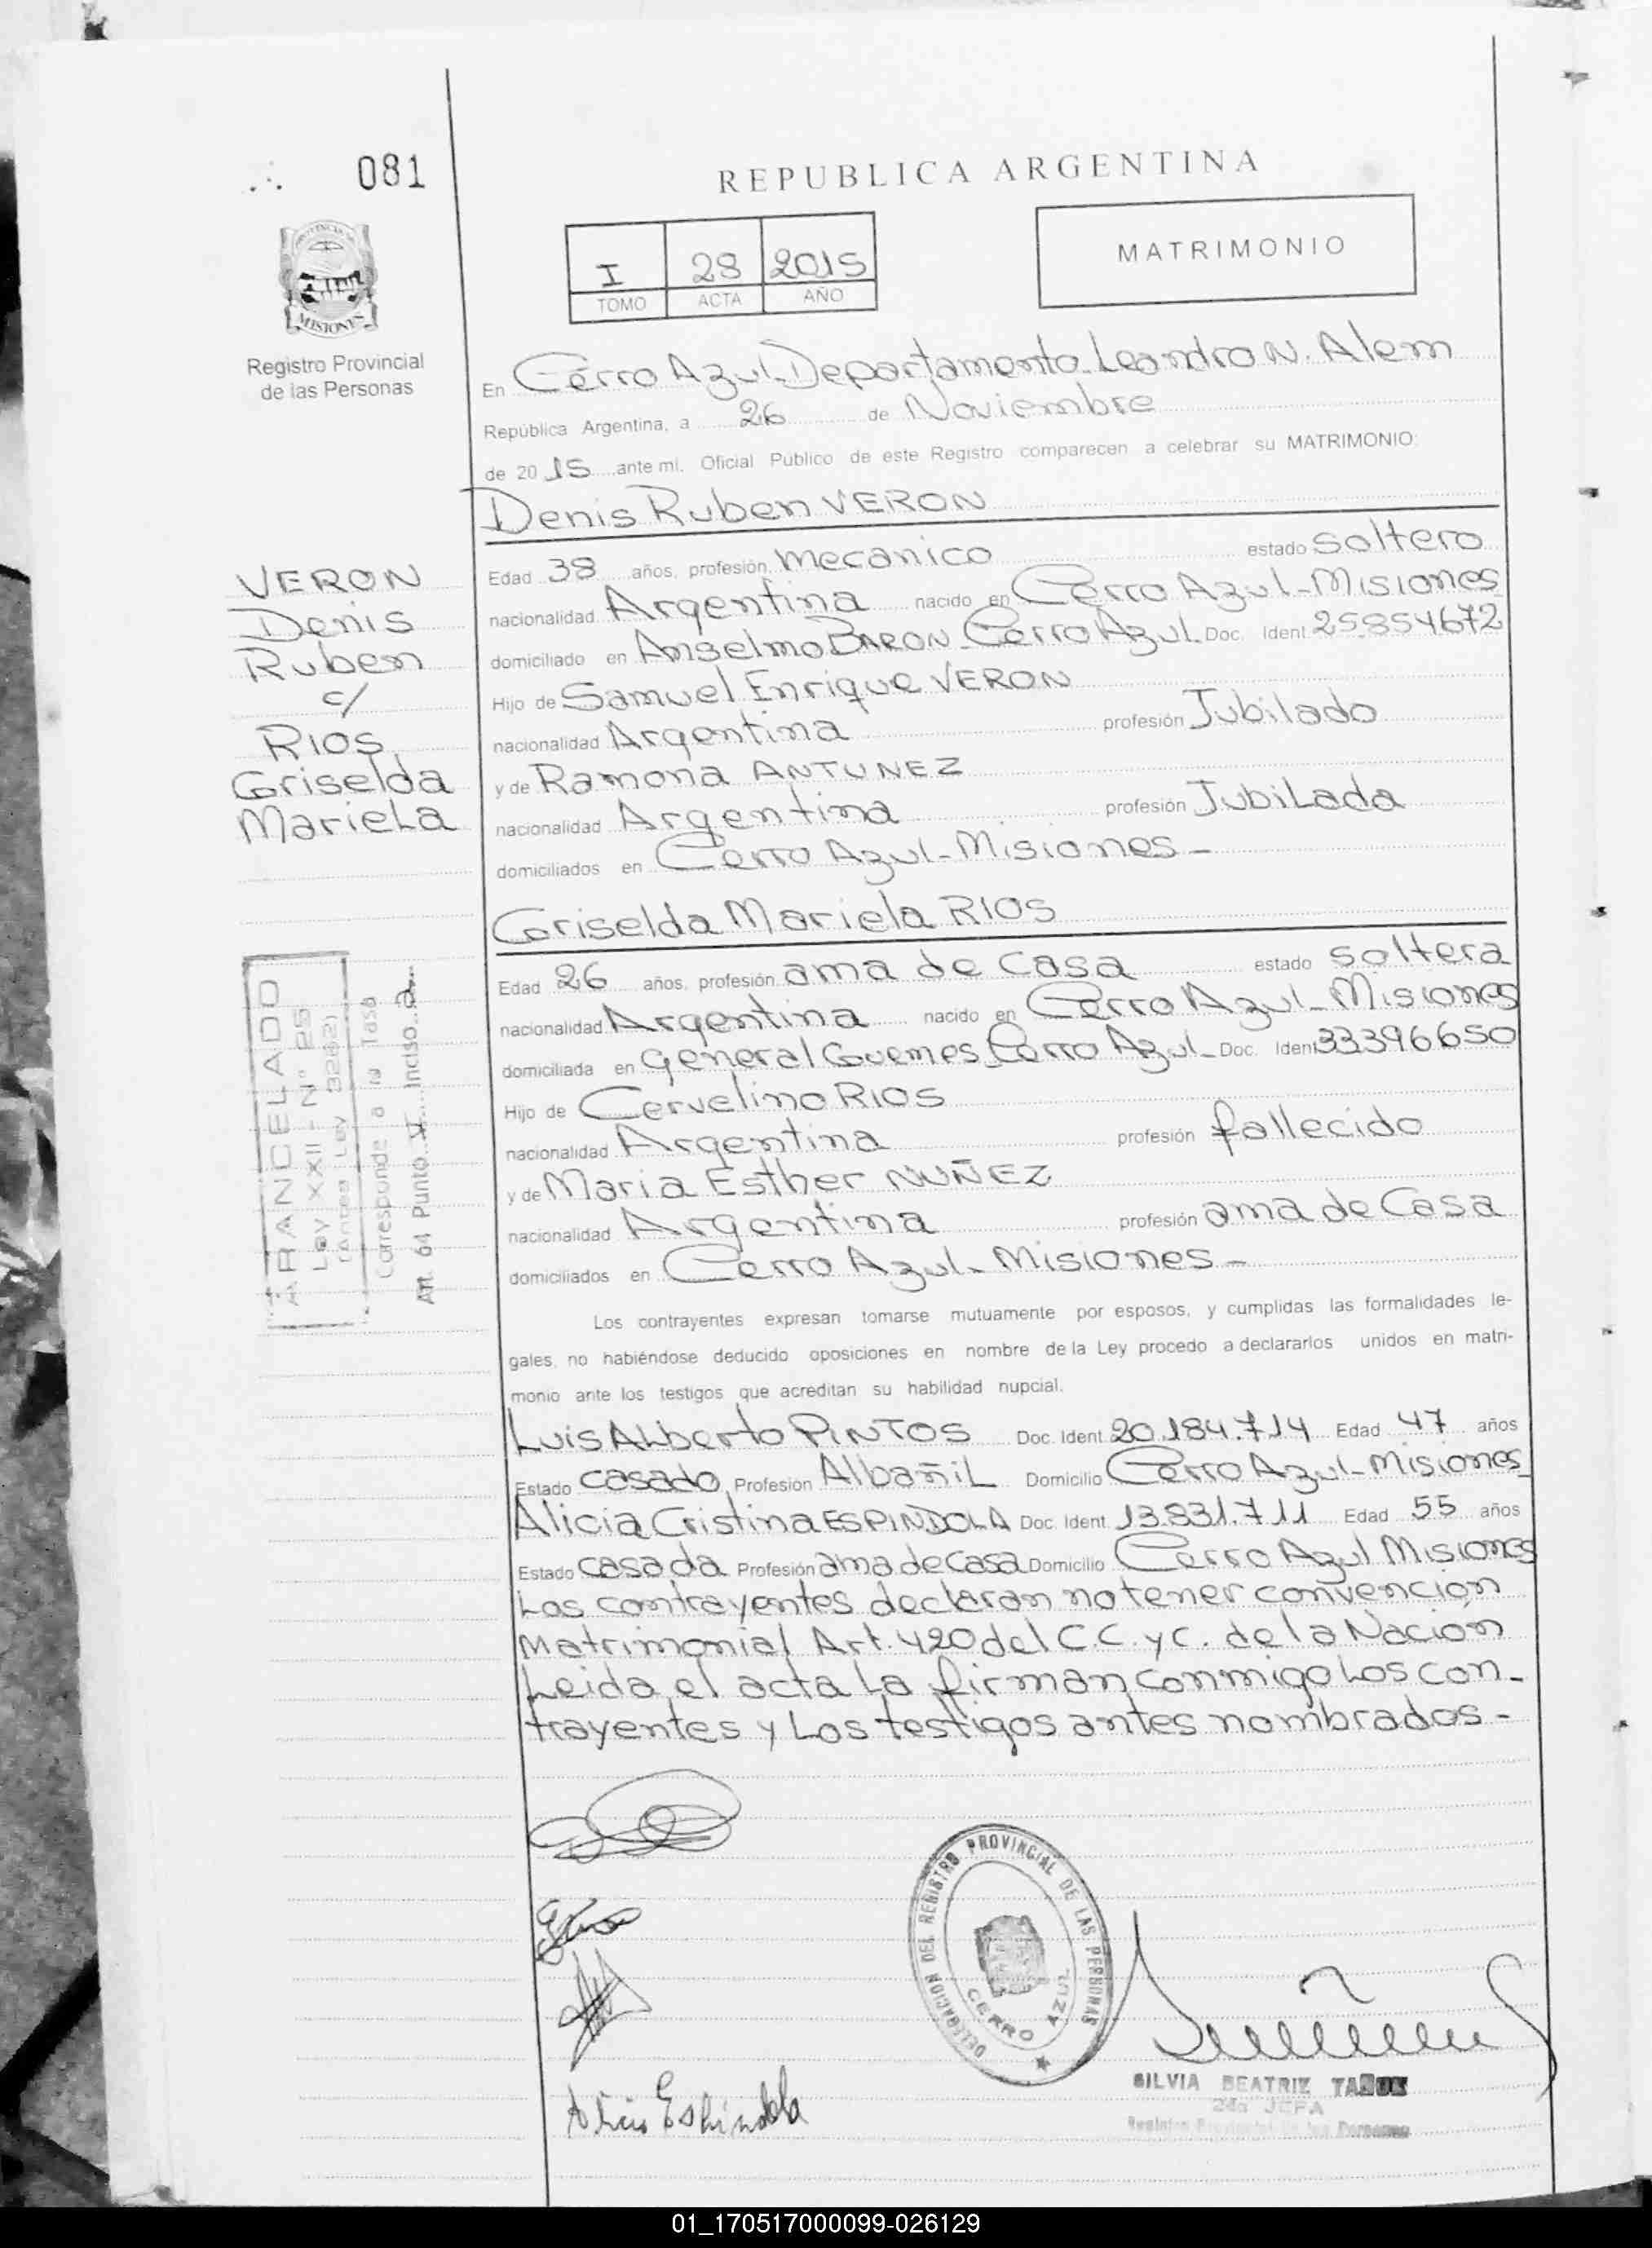 081
REPUBLICA ARGENTINA
MATRIMONIO
I 28 2015
TOMO ACTA AÑO
MISIONES
Registro Provincial
de las Personas
En Cerro Azul-Departamento-Leandro N. Alem
República Argentina, a 26 de Noviembre
de 2015 ante mi, Oficial Público de este Registro comparecen a celebrar su MATRIMONIO:
Denis Ruben VERON
VERON
Denis
Ruben
c/
RIOS
Griselda
Mariela
Edad 38 años, profesión mecanico estado Soltero
nacionalidad Argentina nacido en Cerro Azul-Misiones
domiciliado en Anselmo BARON-Cerro Azul-Doc. Ident 25.854672
Hijo de Samuel Enrique VERON
nacionalidad Argentina profesión Jubilado
y de Ramona ANTUNEZ
nacionalidad Argentina profesión JubiLada
domiciliados en Cerro Azul-Misiones-
Griselda Mariela RIOS
Edad 26 años, profesión ama de Casa estado Soltera
nacionalidad Argentina nacido en Cerro Azul-Misiones
domiciliada en General Guemes Cerro Azul-Doc. Ident 33396650
Hijo de Cervelino RIOS
nacionalidad Argentina profesión fallecido
y de Maria Esther NUÑEZ
nacionalidad Argentina profesión ama de Casa
domiciliados en Cerro Azul-Misiones-
ARANCELADO
Ley XXII - N° 25
(Antes Ley 3262)
Corresponde a la Tasa
Art. 64 Punto V Inciso a
Los contrayentes expresan tomarse mutuamente por esposos, y cumplidas las formalidades le-
gales, no habiéndose deducido oposiciones en nombre de la Ley procedo a declararlos unidos en matri-
monio ante los testigos que acreditan su habilidad nupcial.
Luis ALberto PINTOS Doc. Ident 20.184.714 Edad 47 años
Estado Casado Profesión AlbañiL Domicilio Cerro Azul-Misiones
Alicia Cristina ESPINDOLA Doc. Ident 13.831.711 Edad 55 años
Estado Casada Profesión ama de Casa Domicilio Cerro Azul Misiones
Los contrayentes declaran no tener convención
Matrimonial Art. 420 del C.C. y C. de la Nación
Leida el acta La firman conmigo Los con-
trayentes y Los testigos antes nombrados-
DELEGACION DEL REGISTRO PROVINCIAL DE LAS PERSONAS
CERRO AZUL
Alicia Espindola
SILVIA BEATRIZ
JEFA
01_170517000099-026129